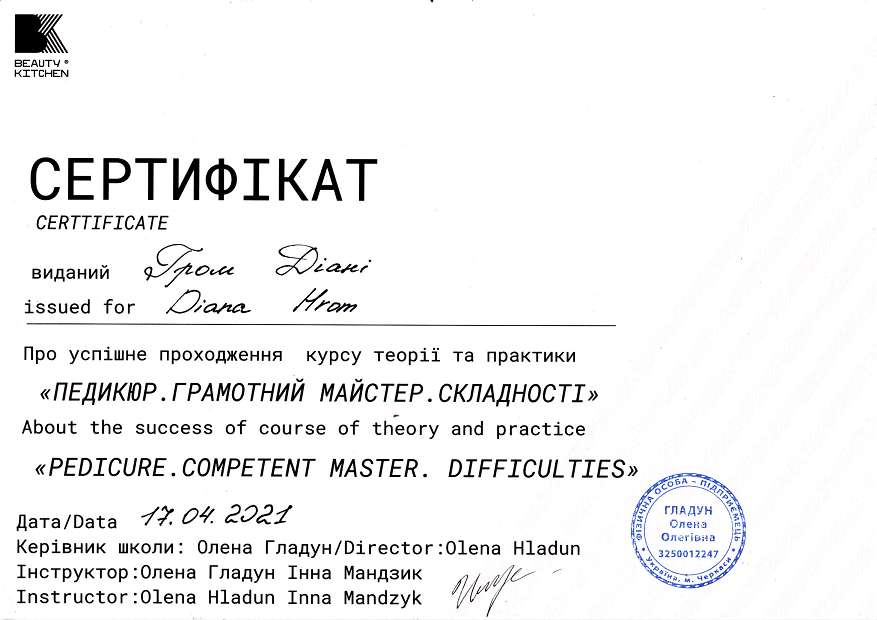 BEAUTY®
KITCHEN
СЕРТИФІКАТ
CERTTIFICATE
виданий Гром Діані
issued for Diana Hrom
Про успішне проходження курсу теорії та практики
«ПЕДИКЮР.ГРАМОТНИЙ МАЙСТЕР.СКЛАДНОСТІ»
About the success of course of theory and practice
«PEDICURE.COMPETENT MASTER. DIFFICULTIES»
Дата/Data 17.04.2021
Керівник школи: Олена Гладун/Director:Olena Hladun
Інструктор:Олена Гладун Інна Мандзик
Instructor:Olena Hladun Inna Mandzyk
ФІЗИЧНА ОСОБА – ПІДПРИЄМЕЦЬ
ГЛАДУН
Олена
Олегівна
3250012247
* Україна, м. Черкаси *